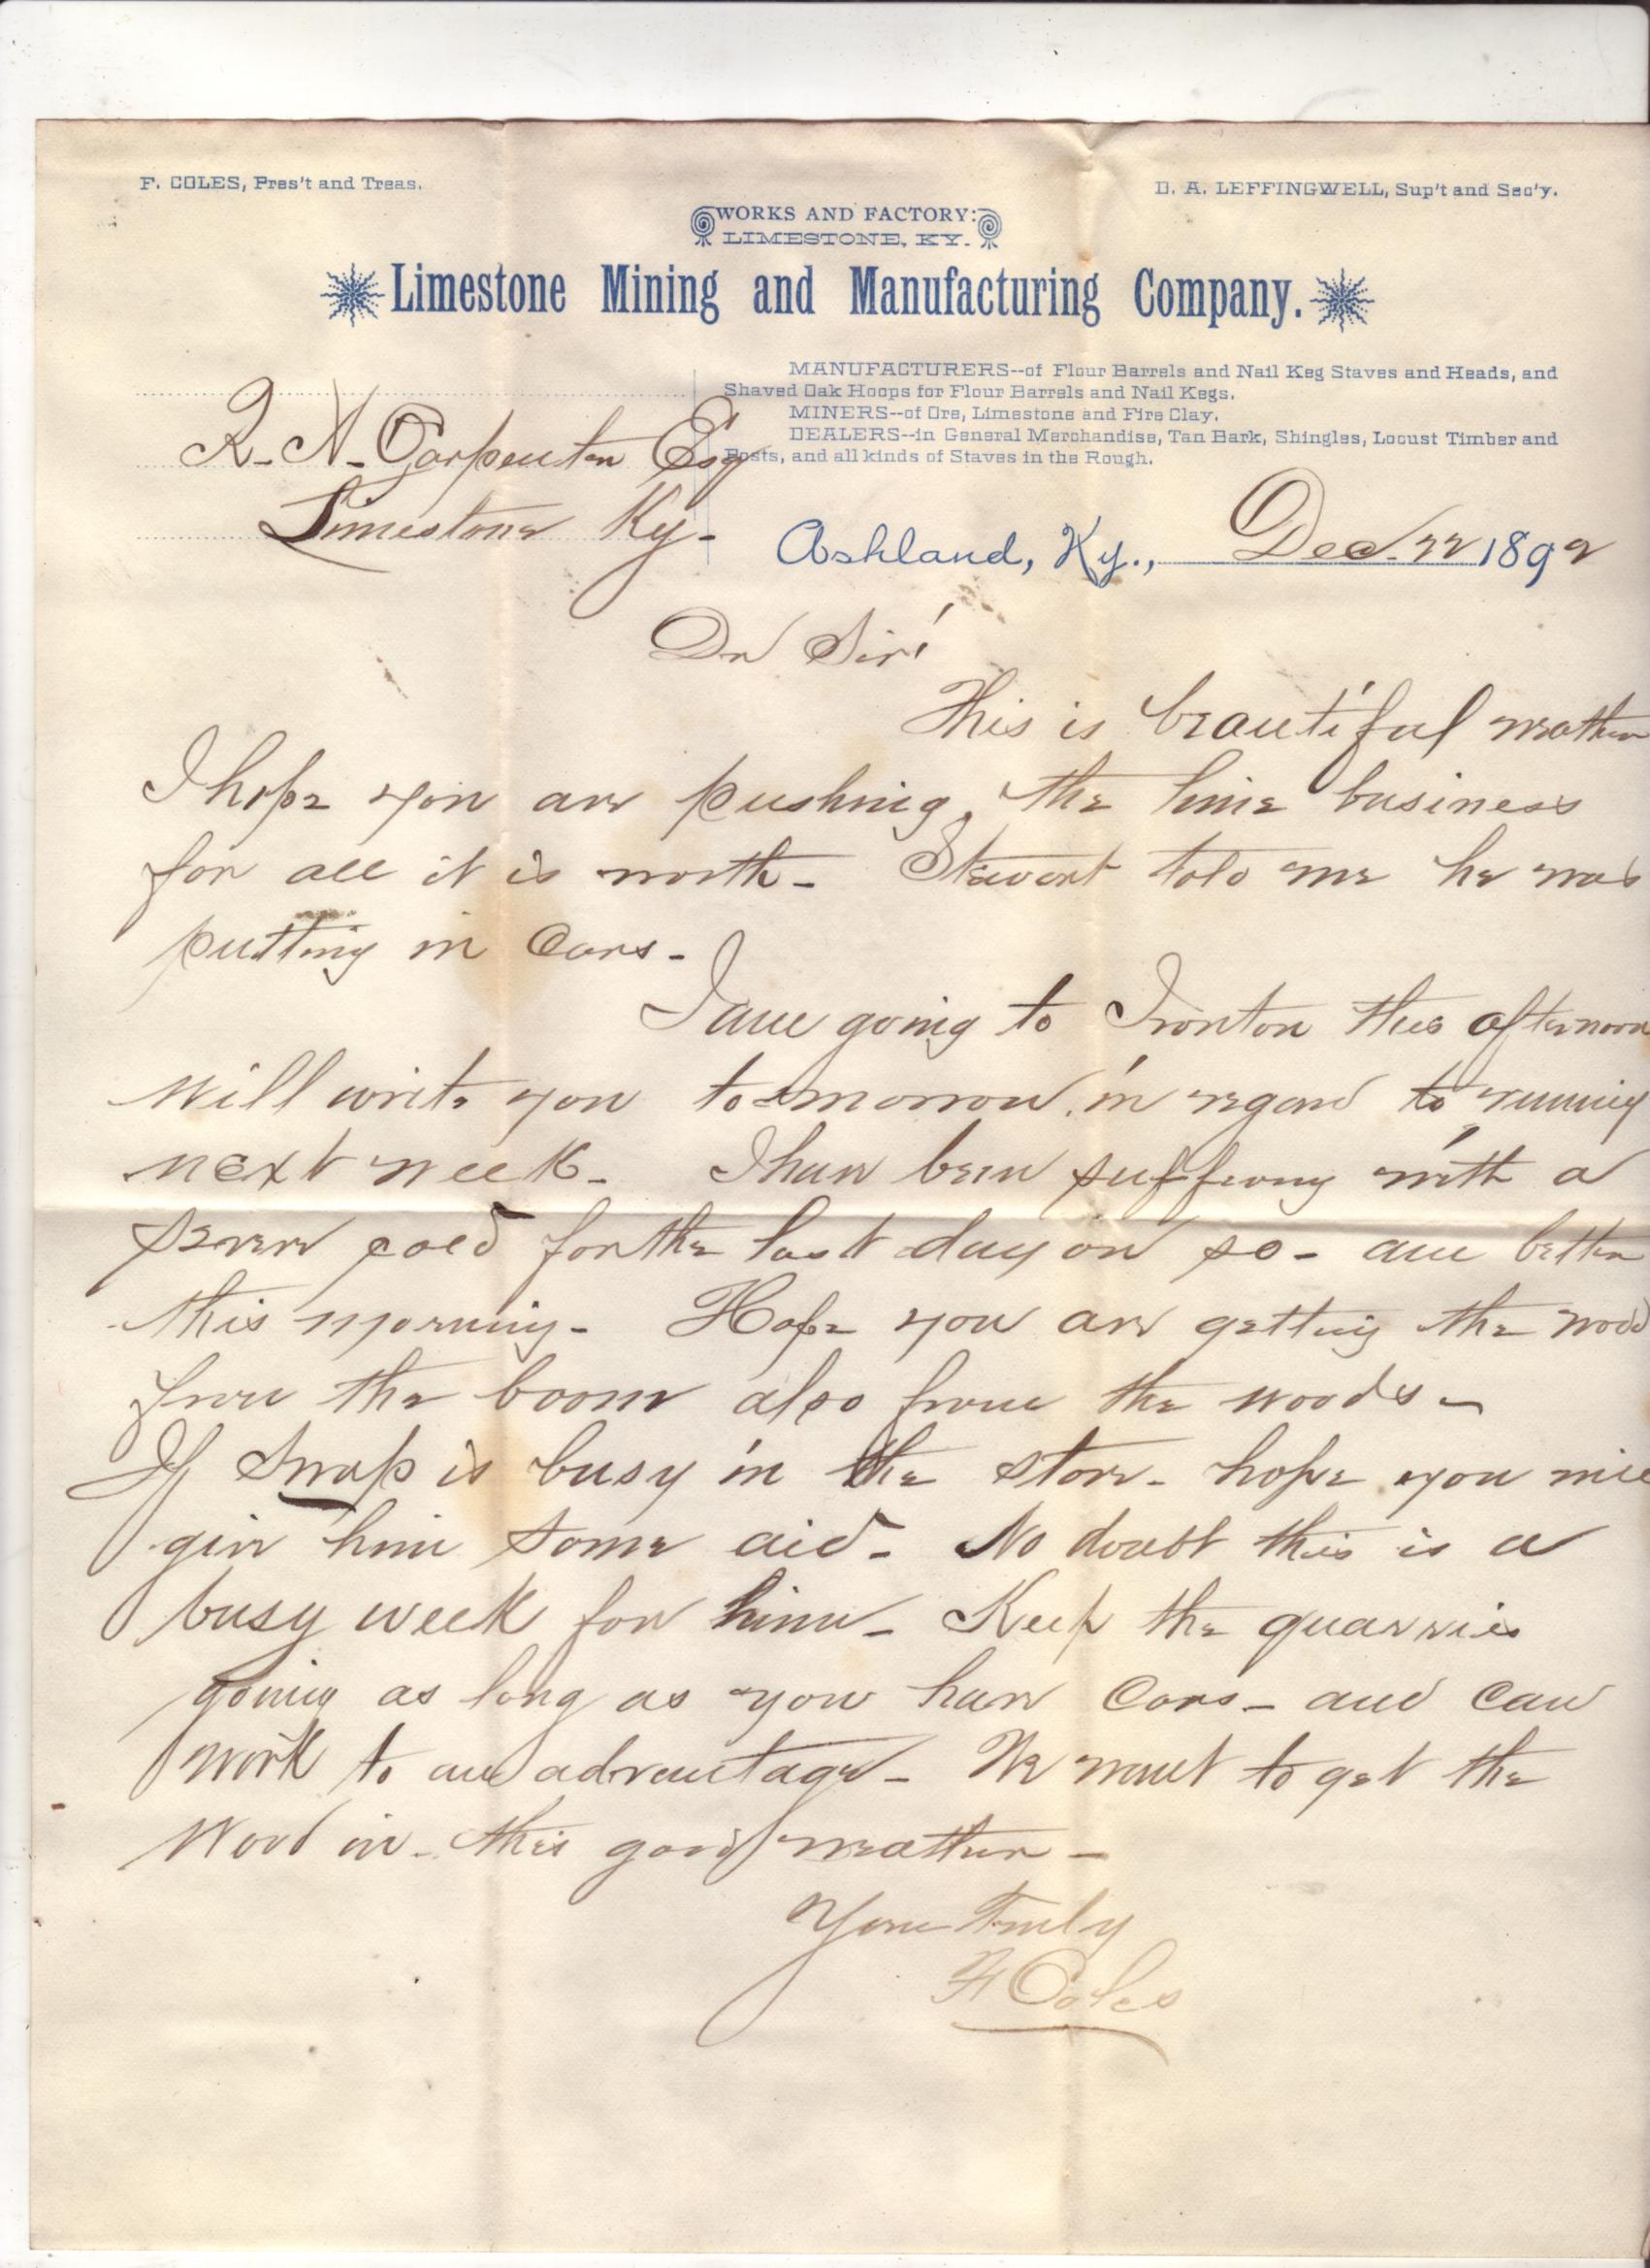 F. COLES, Pres't and Treas.
D. A. LEFFINGWELL, Sup't and Sec'y.
WORKS AND FACTORY:
LIMESTONE, KY.
Limestone Mining and Manufacturing Company.
MANUFACTURERS--of Flour Barrels and Nail Keg Staves and Heads, and
Shaved Oak Hoops for Flour Barrels and Nail Kegs.
MINERS--of Ore, Limestone and Fire Clay.
DEALERS--in General Merchandise, Tan Bark, Shingles, Locust Timber and
Posts, and all kinds of Staves in the Rough.
Carpenter Esq
Limestone Ky-
Ashland, Ky., Dec. 22 1892
Dr Sir
This is beautiful weather
I hope you are pushing the lime business
for all it is worth- Stewart told me he was
putting in Cars-
I am going to Ironton this afternoon
will write you tomorrow in regard to running
next week- I have been suffering with a
severe cold for the last day or so- am better
this morning- Hope you are getting the wood
from the boom also from the woods-
If is busy in the store- hope you will
give him some aid- No doubt this is a
busy week for him- Keep the quarries
going as long as you have Cars- and can
work to an advantage- We want to get the
wood in- this good weather-
Yours Truly
F Coles